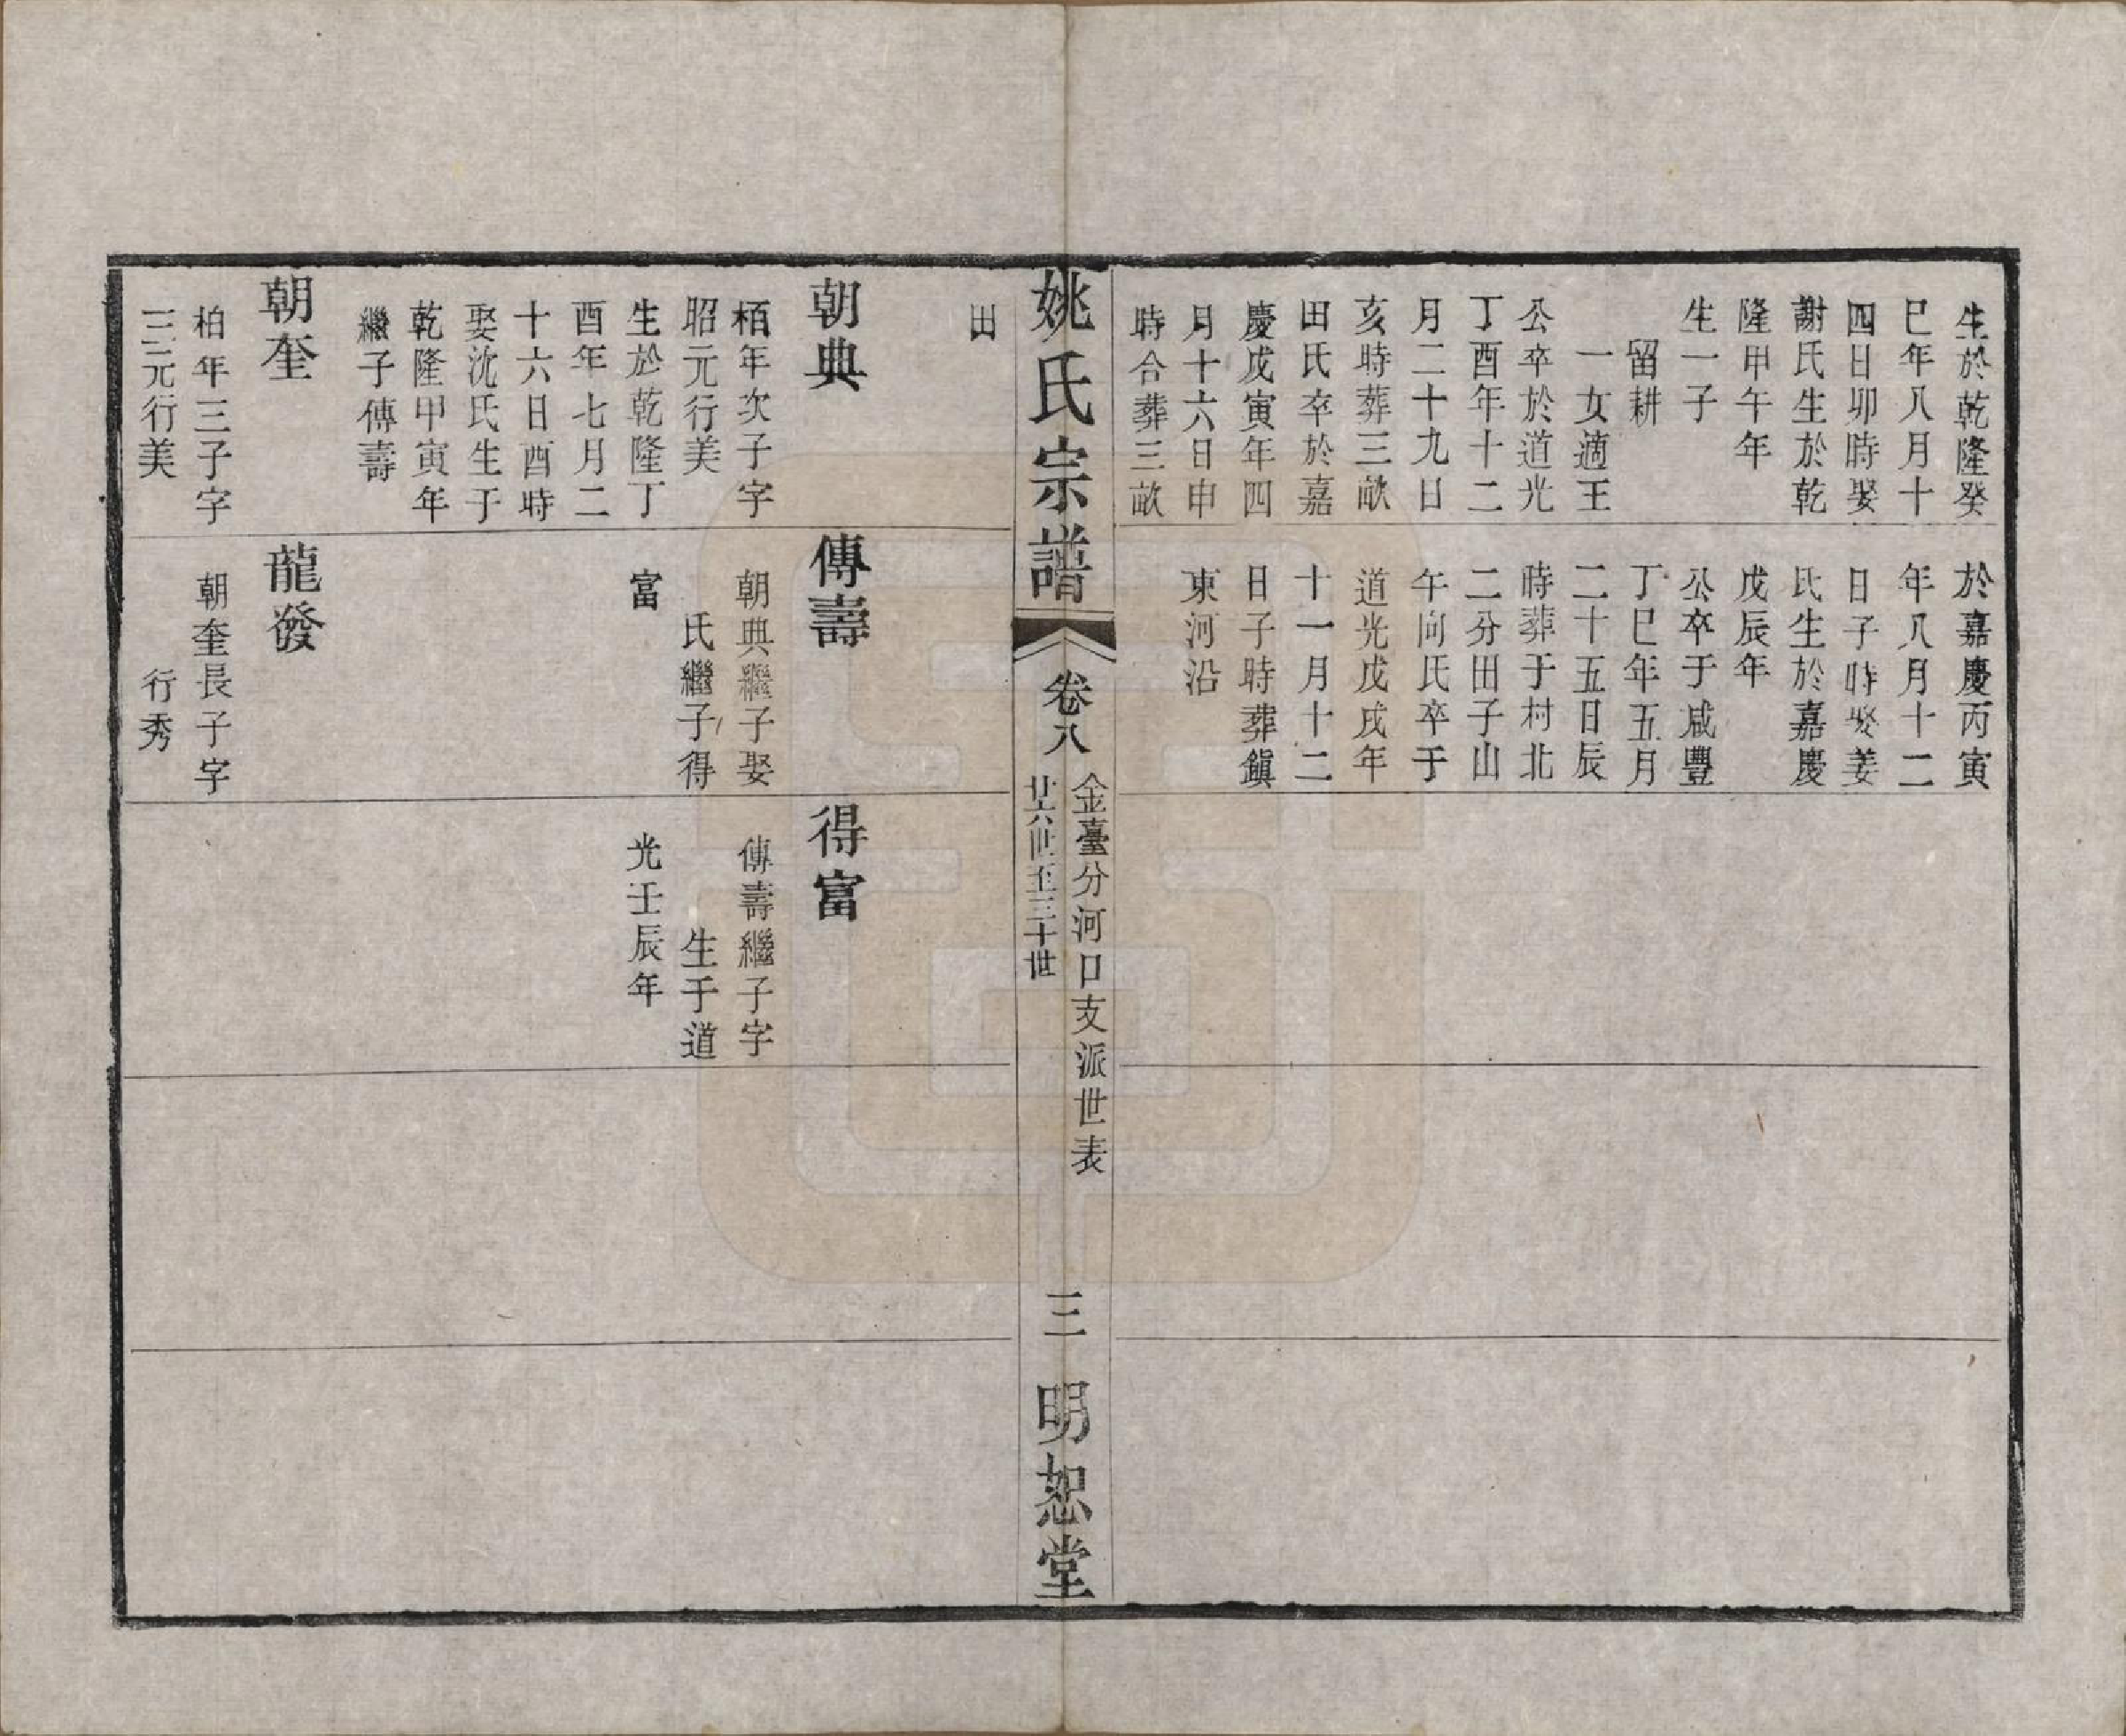 生於乾隆癸
巳年八月十
四日卯時娶
謝氏生於乾
隆甲午年
生一子
留耕
一女適王
公卒於道光
丁酉年十二
月二十九日
亥時葬三畝
田氏卒於嘉
慶戊寅年四
月十六日申
時合葬三畝
於嘉慶丙寅
年八月十二
日子時娶姜
氏生於嘉慶
戊辰年
公卒于咸豐
丁巳年五月
二十五日辰
時葬于村北
二分田子山
午向氏卒于
道光戊戌年
十一月十二
日子時葬鎭
東河沿
姚氏宗譜
卷八
金臺分河口支派世表
廿六世至三十世
三
明恕堂
田
朝典
栢年次子字
昭元行美
生於乾隆丁
酉年七月二
十六日酉時
娶沈氏生于
乾隆甲寅年
繼子傳壽
朝奎
柏年三子字
三元行美
傳壽
朝典繼子娶
氏繼子得
富
龍發
朝奎長子字
行秀
得富
傳壽繼子字
生于道
光壬辰年